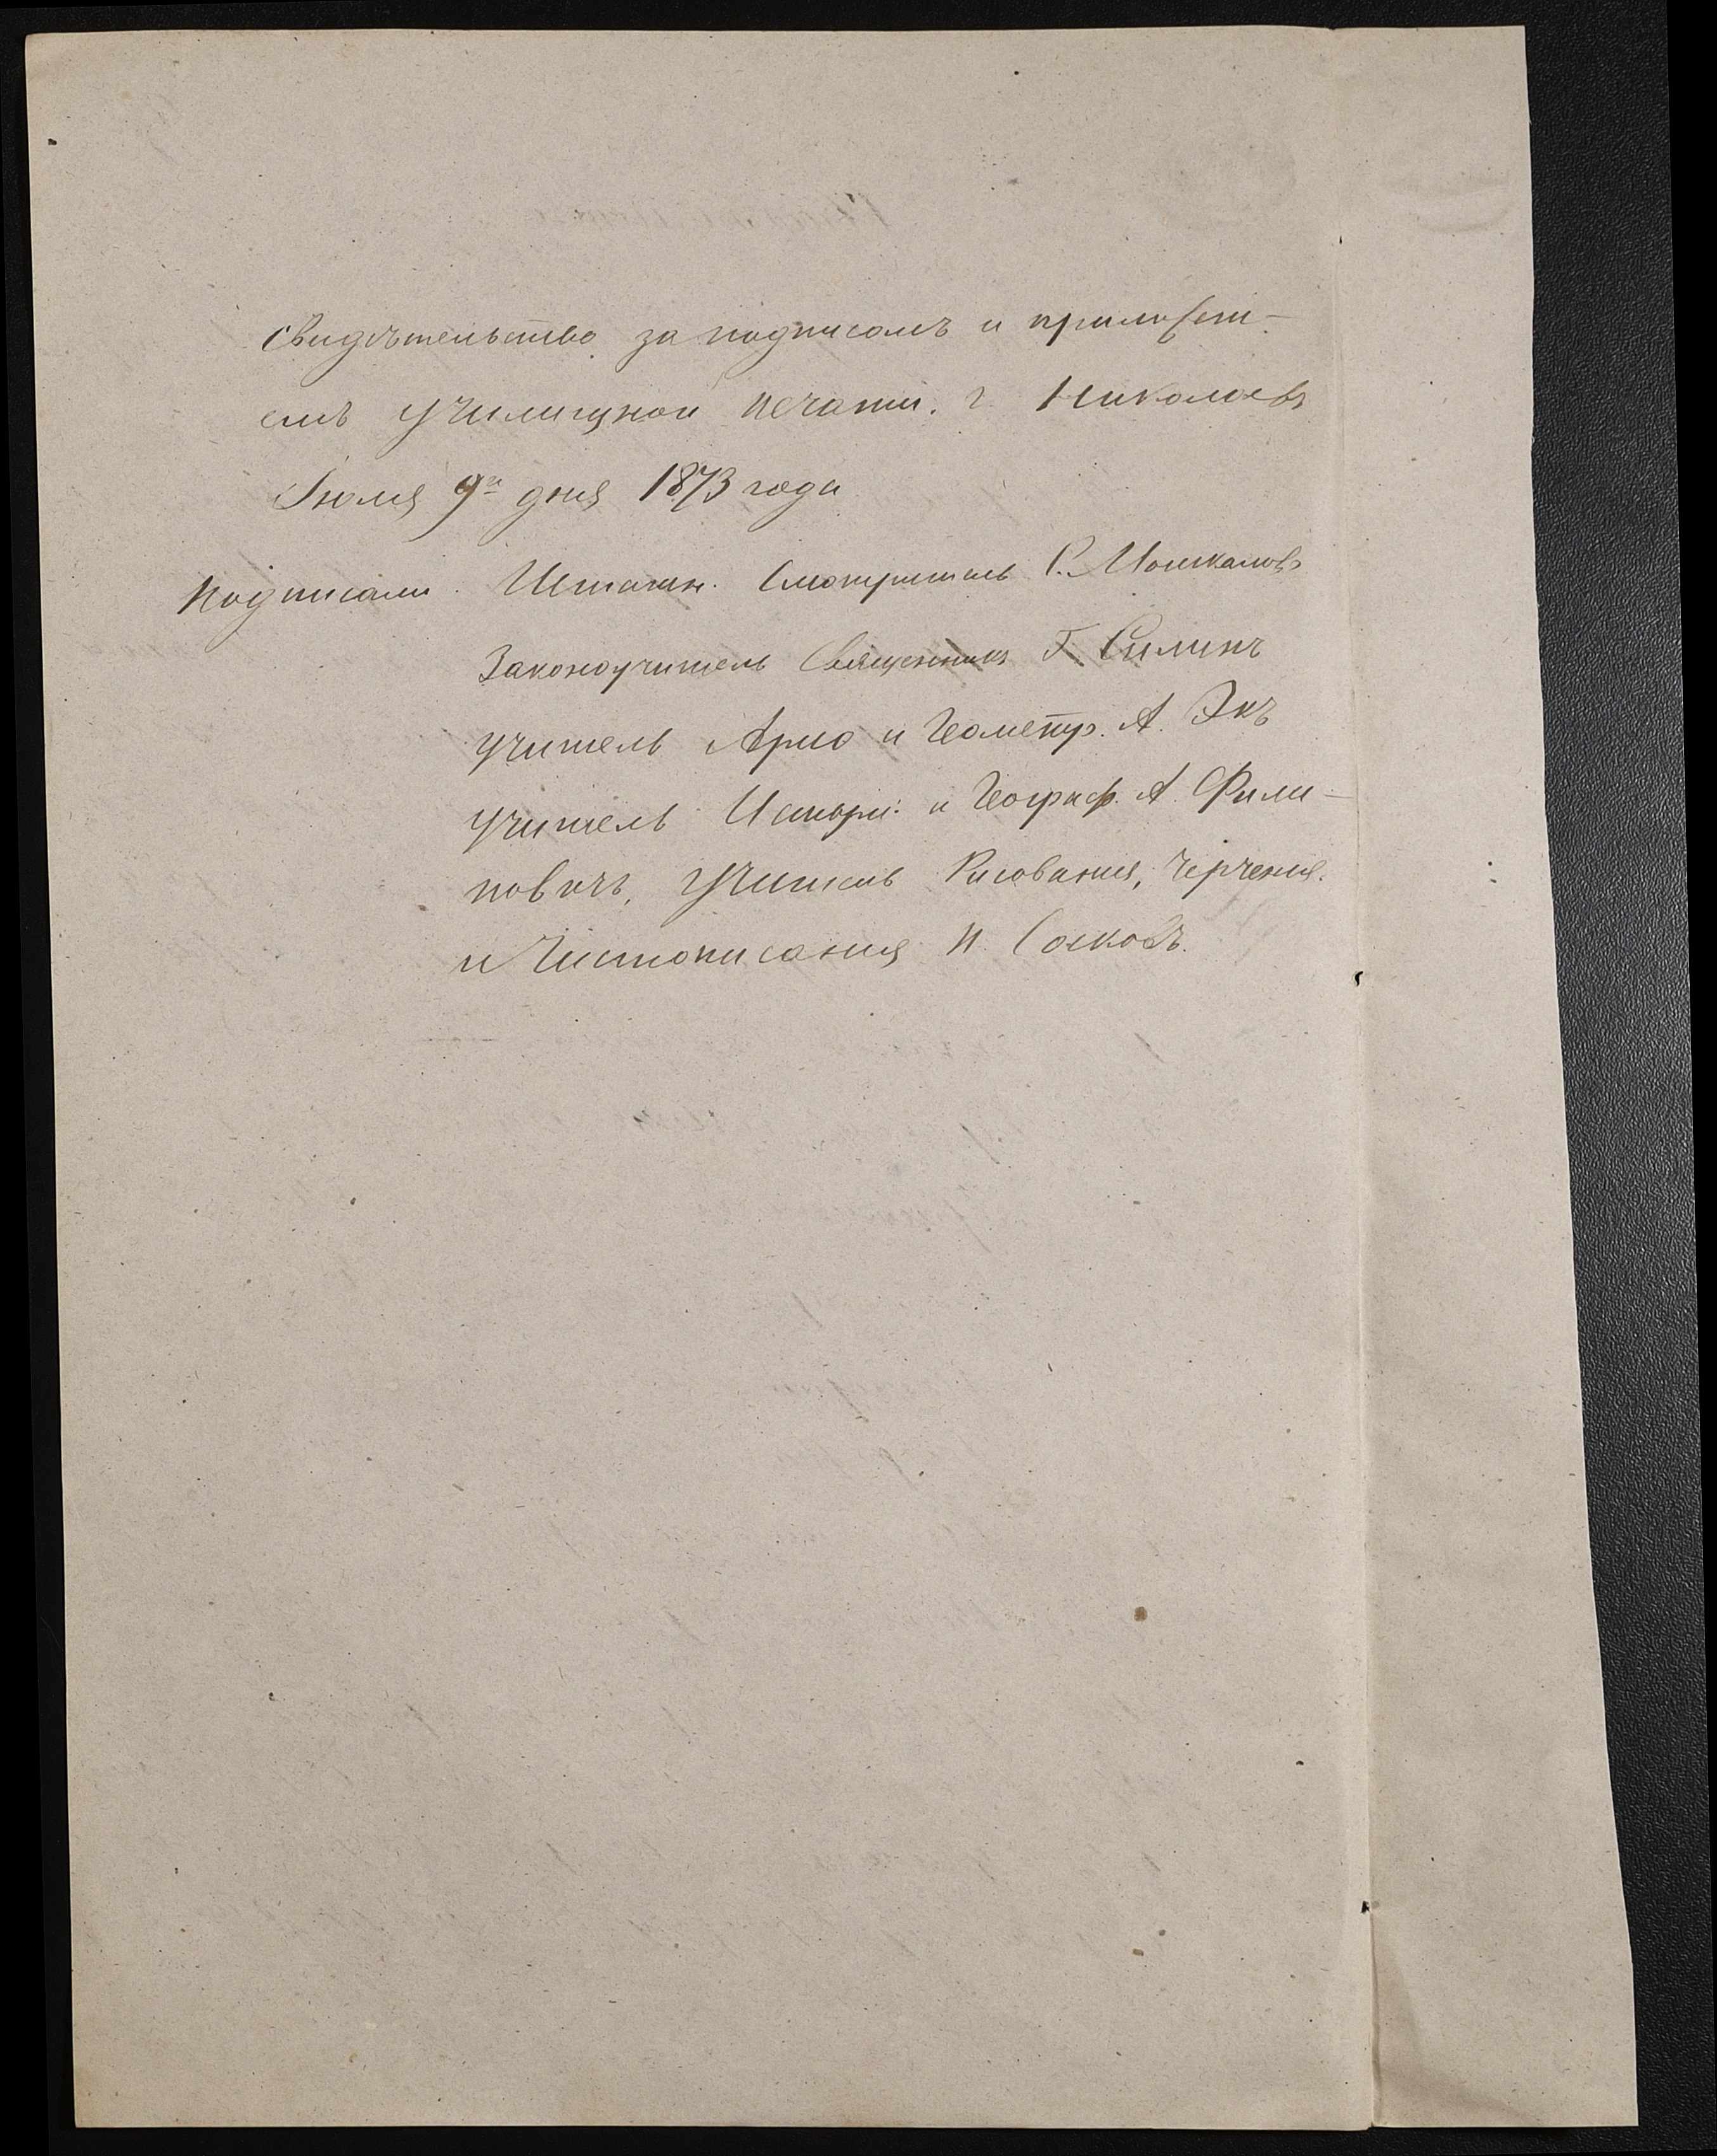 свидѣтельство за подписомъ и приложені-
емъ училищной печати. г. Николаевъ
Іюля 9го дня 1873 года
Подписали. Штатн. Смотритель С. Мошкаловъ
Законоучитель Священникъ Г. Силинъ
учитель Ариө и Геометр. А. Экъ
учитель Истори: и Географ. А. Фили-
повичъ, учитель Рисованія, Черченія
и Чистописанія И. Сосковъ.